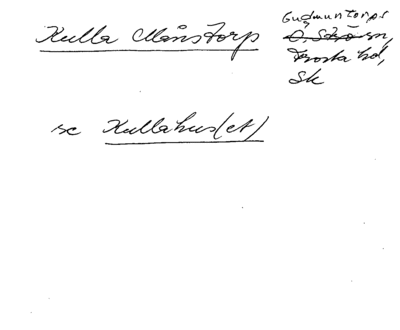 Kulla Månstorp
Gudmuntorps
sn,
Frosta hd,
Sk
se Kullahus(et)